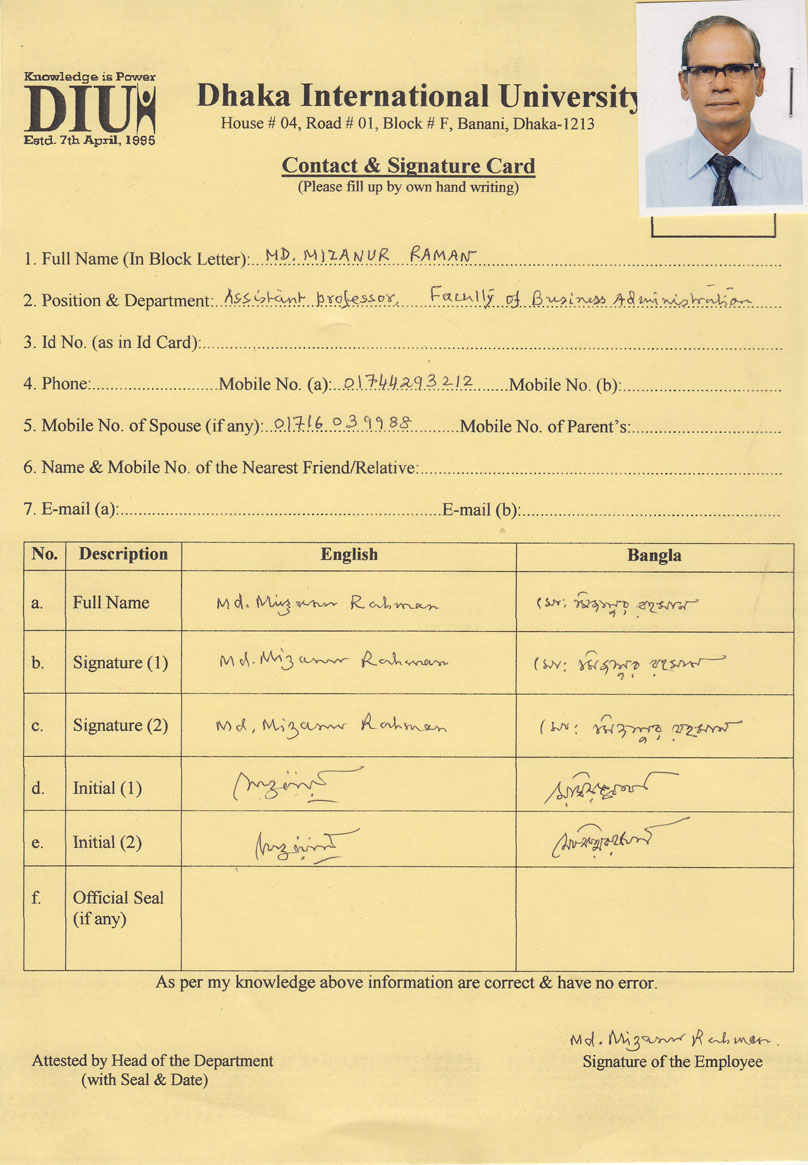 Knowledge is Power
DIU
Estd. 7th April, 1995
Dhaka International University
House # 04, Road # 01, Block # F, Banani, Dhaka-1213
Contact & Signature Card
(Please fill up by own hand writing)
1. Full Name (In Block Letter): MD. MIZANUR RAMAN
2. Position & Department: Assistant professor, Faculty of Business Administration
3. Id No. (as in Id Card):
4. Phone: Mobile No. (a): 01744293212 Mobile No. (b):
5. Mobile No. of Spouse (if any): 01716 039988 Mobile No. of Parent's:
6. Name & Mobile No. of the Nearest Friend/Relative:
7. E-mail (a): E-mail (b):
No. Description English Bangla
a. Full Name Md. Mizanur Rahman মো: মিজানুর রহমান
b. Signature (1) Md. Mizanur Rahman মো: মিজানুর রহমান
c. Signature (2) Md. Mizanur Rahman মো: মিজানুর রহমান
d. Initial (1)
e. Initial (2)
f. Official Seal
(if any)
As per my knowledge above information are correct & have no error.
Md. Mizanur Rahman.
Attested by Head of the Department Signature of the Employee
(with Seal & Date)